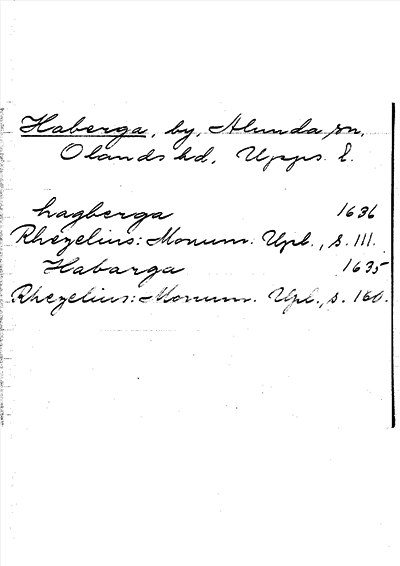 Haberga, by, Alunda sn,
Olands hd, Upps. l.
hagberga 1636
Rhezelius: Monum. Upl., s. 111.
Habarga 1635
Rhezelius: Monum. Upl., s. 160.